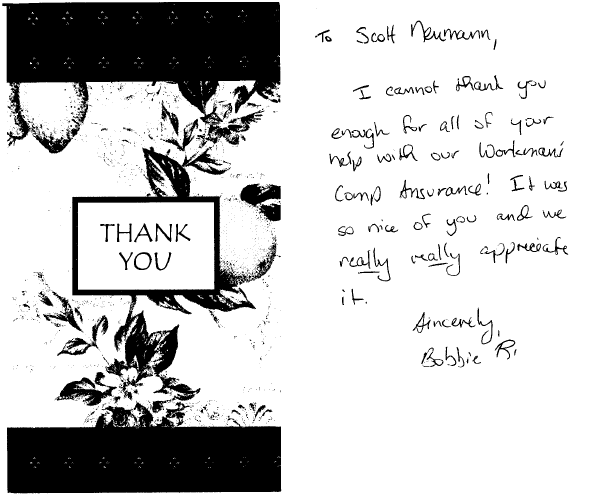 THANK
YOU
To Scott Neumann,
I cannot thank you
enough for all of your
help with our Workman's
Comp Insurance! It was
so nice of you and we
really really appreciate
it.
Sincerely,
Bobbie R.